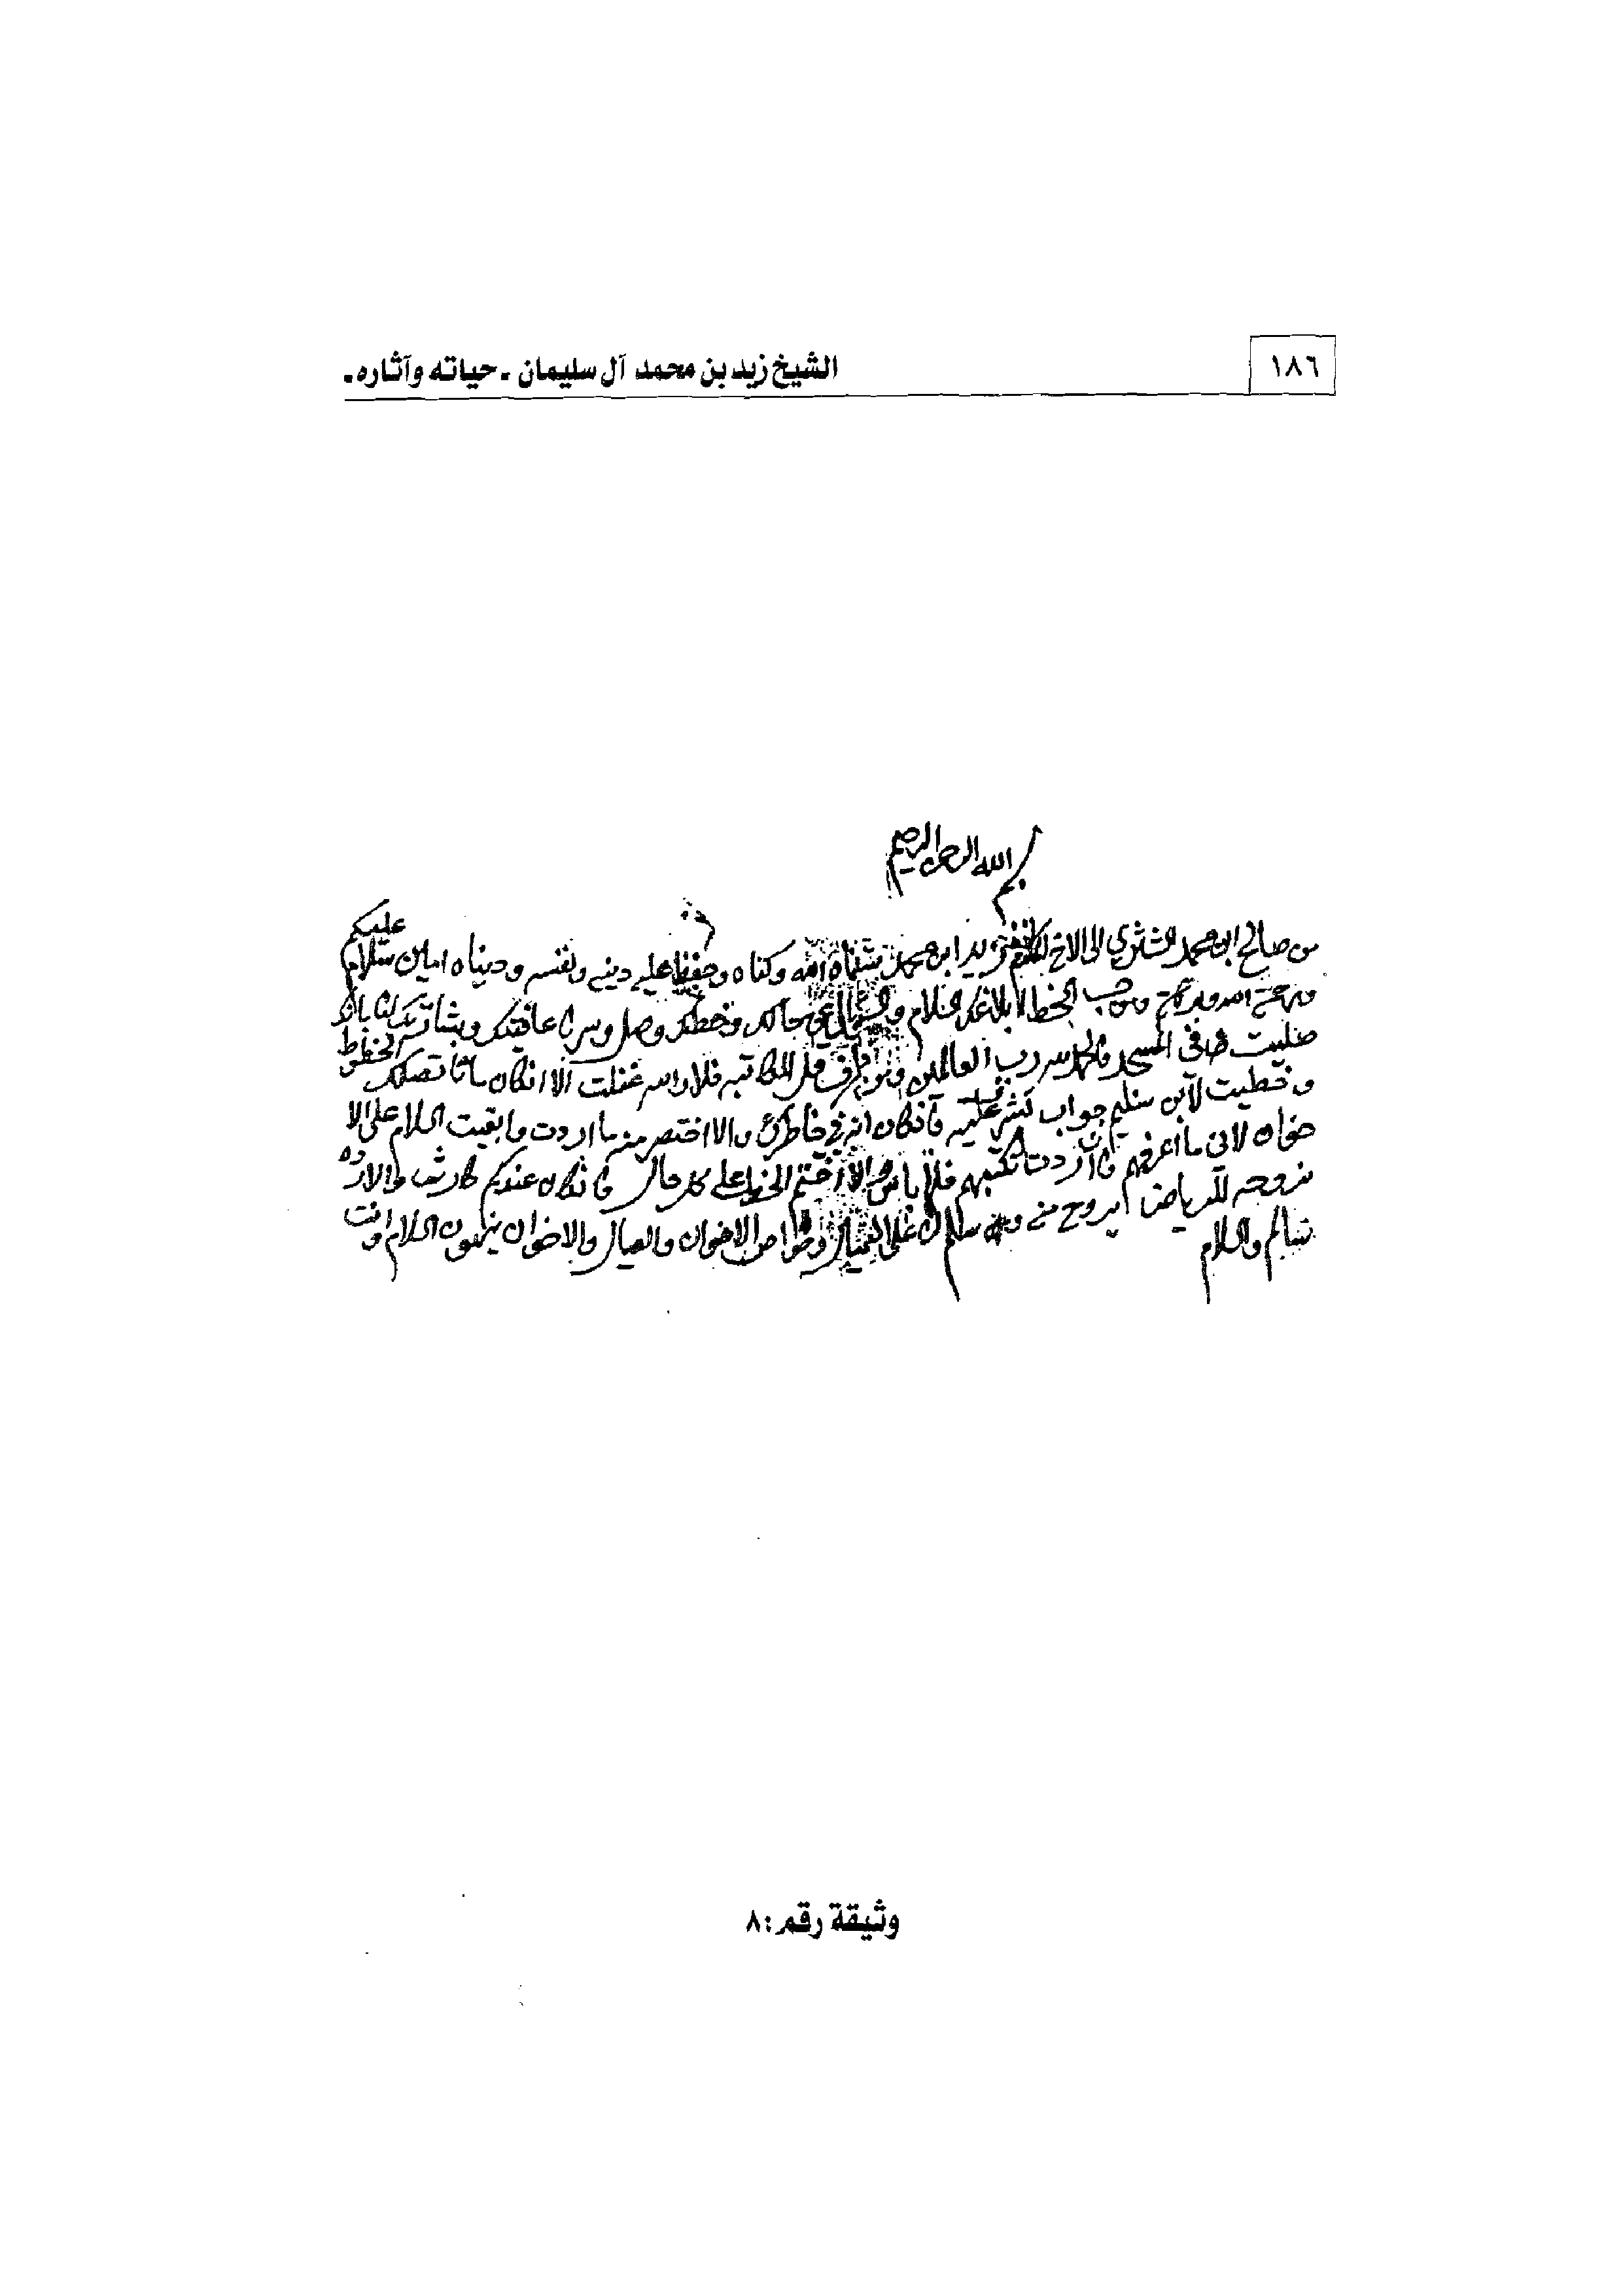 ١٨٦
الشيخ زيد بن محمد آل سليمان ـ حياته وآثاره ـ
بسم الله الرحمن الرحيم
من صالح ابن محمد الشثري الى الاخ المكرم زيد ابن محمد سلمه الله وكفاه وحفظ عليه دينه ونفسه ودنياه امين سلام عليكم
ورحمة الله وبركاته وموجب الخط لابلاغك السلام والسؤال عن حالك وخطك وصل وسرنا عافيتك وبشارتك لنا بانك
صليت في المسجد فالحمد لله رب العالمين ومن طرف المكاتبه فلا والله غفلت الا انكان ما تصلك الخطوط
وخطيت لابن سليم جواب تشرف عليه فانكان انه في خاطرك والا اختصر منه ما اردت وابقيت السلام على الا
خوان لاني ما اعرفهم فان اردت تكتبهم فلا باس والا اختم الخط على كل حال فانكان عندكم كارش
للرياض يروح منه سلم لنا على العيال وخواص الاخوان والعيال والاخوان ينهون السلام وانت
سالم والسلام
وثيقة رقم: ٨